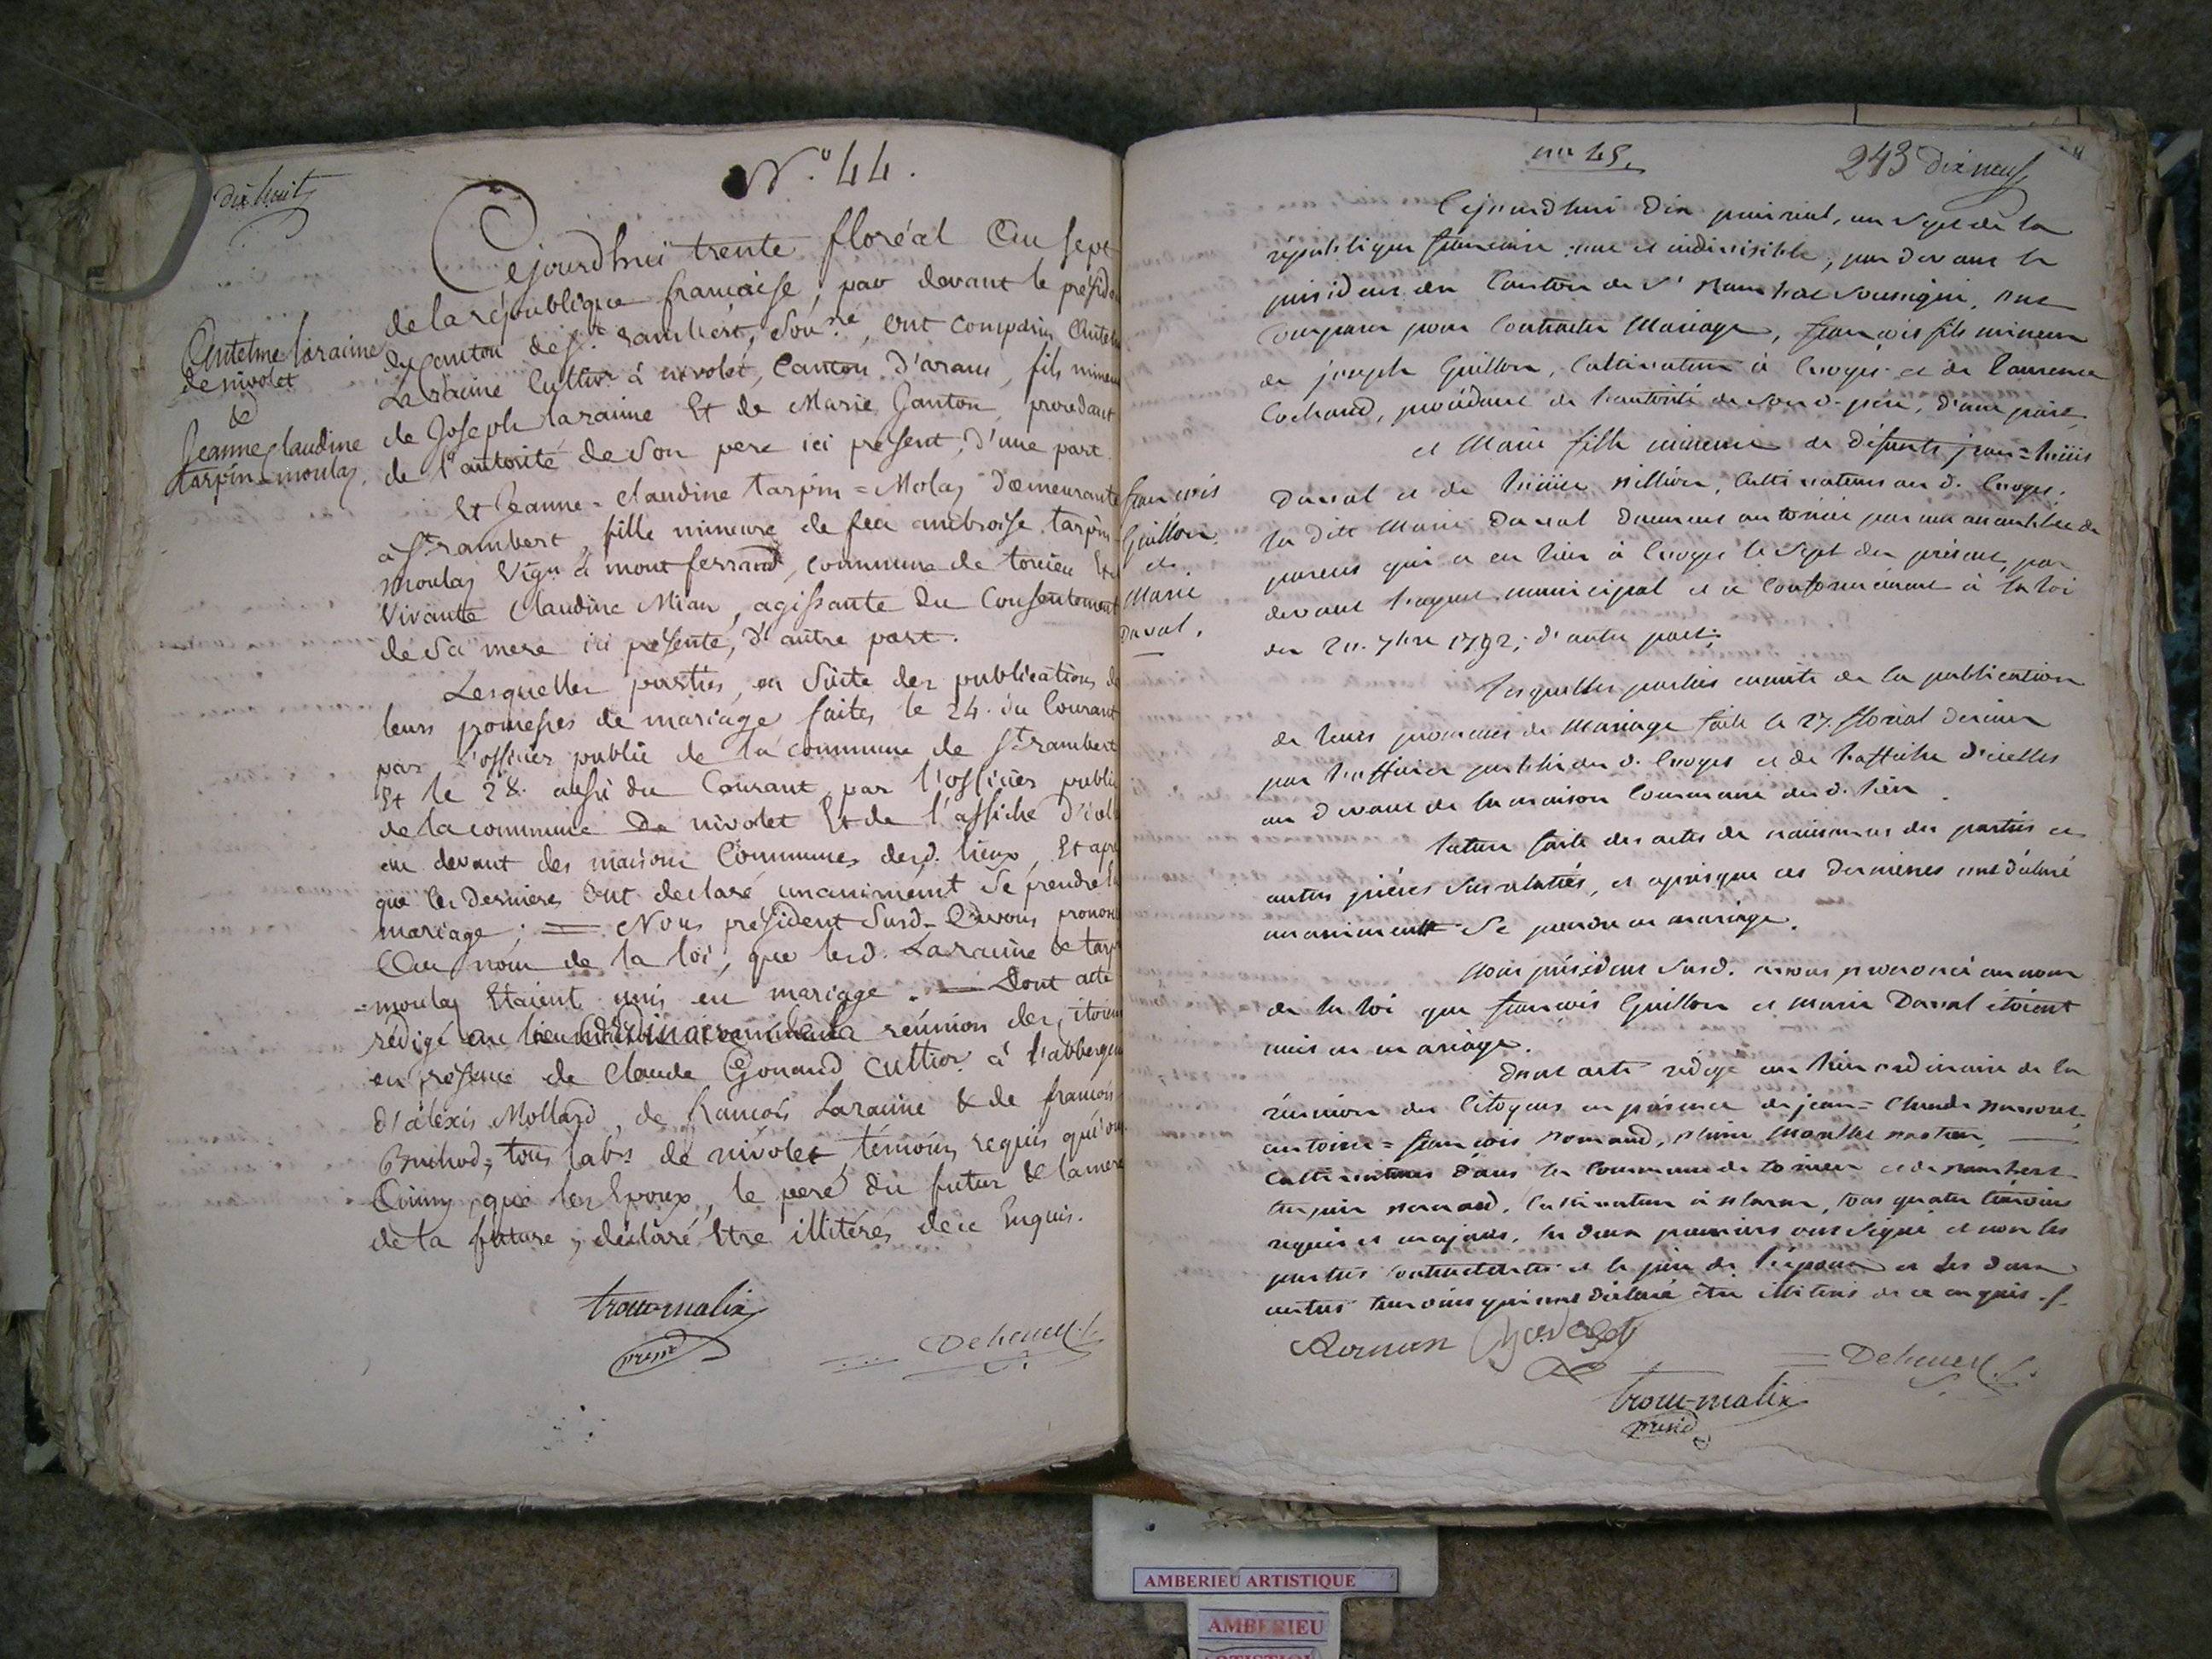 dix huit
N.o 44.
Cejourdhui trente floréal an sept
de la république francaise, par devant le présid
du canton de st. rambert, sou.né, ont comparu Antel
Laraine cultivr à nivolet, Canton d'arans, fils mineur
de Joseph laraine Et de Marie Janton, procédant
de l'autorité de son pere ici présent, d'une part.
Et Jeanne-claudine tarpin=Molay demeurante
à st. rambert, fille mineure de feu ambroise tarpin
moulay Vign à mont ferrand, commune de torcieu Et
Vivante Claudine Mian, agissante du Consentement
de sa mere ici présente, d'autre part.
Lesquelles parties, en suite des publications de
leurs promesses de mariage faites le 24. du Courant
par l'officier public de la commune de st. rambert
Et le 28. aussi du Courant, par l'officier public
de la commune De nivolet Et de l'affiche d'icell
au devant des maisons Communes desd. lieux, Et apr
que les dernieres Ont declaré unanimemt Se prendre E
mariage; = Nous président Susd. avons prononc
Au nom de la loi, que lesd. Laraine & tarp
=moulay Etaient unis en mariage. — Dont acte
rédigé au lieu ordinaire de la réunion des citoien
en présence de claude Gonand cultivr. à l'abbergem
d'alexis Mollard, de francois Laraine & de francois
Bruchod, tous labrs de nivolet, témoins requis qui n'on
, que les Epoux, le pere du futur & la mere
de la future, déclaré Etre illitérés de ce Enquis.
trocu-malix
présid
Deheuell.
Antelme laraine
de nivolet
&
Jeanne Claudine
tarpin=moulay.
no 45.
243 Dix neuf
Cejourdhui dix prairial, an sept de la
république francaise une et indivisible, par devant le
président du Canton de st rambert soussigné, ont
comparu pour Contracter Mariage, francois fils mineur
de joseph Guillon, Cultivateur à et de laurence
Cochand, procédant de l'autorité de son d. père, d'une part,
et Marie fille mineure de défunts jean=
Daval et de, Cultivateurs au d.
la dite Marie Daval autorisée par une assemblée de
parens qui a eu lieu à le sept du présent, par
devant l'agent municipal et conformément à la loi
du 20. 7bre 1792; d'autre part;
lesquelles parties ensuite de la publication
de leurs promesses de Mariage faite le 27. floréal dernier
par l'officier public du d. et de l'affiche d'icelles
au devant de la maison Commune du d. lieu.
lecture faite des actes de naissances des parties et
autres pièces, et après que ces dernières ont déclaré
unanimemt Se prendre en mariage.
Nous président Susd. avons prononcé au nom
de la loi que francois Guillon et marie Daval étoient
unis en mariage.
Dont acte rédigé au lieu ordinaire de la
réunion des Citoyens en présence de jean=Claude
antoine=francois
Cultivateurs dans la Commune de torcieu et de rambert
Cultivateur à, tous quatre témoins
requis et majeurs, les deux premiers ont signé et non les
parties contractantes et le père de l'époux et les deux
autres témoins qui ont déclaré être illitérés de ce enquis.
Deheuell.
trocu-malix
présid
francois
Guillon
et
Marie
Daval.
AMBERIEU ARTISTIQUE
AMBERIEU
ARTISTIQUE